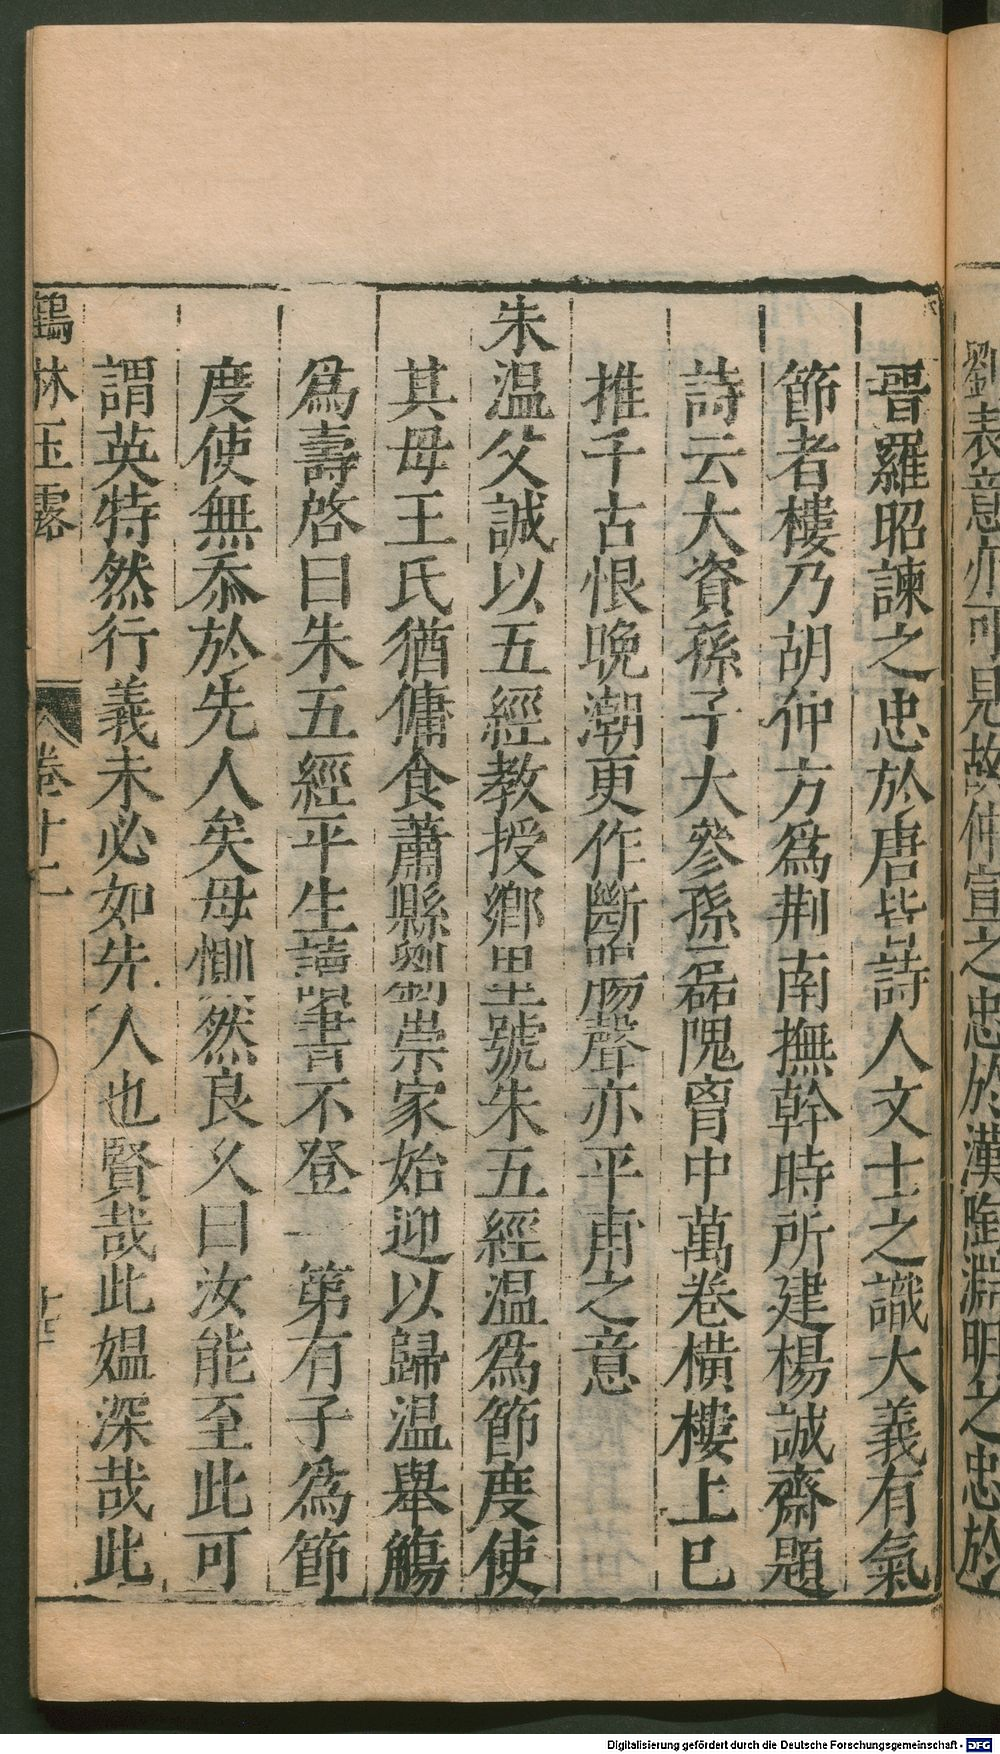 劉表意亦可見故仲宣之忠於漢陶淵明之忠於
晉羅昭諫之忠於唐皆詩人文士之識大義有氣
節者樓乃胡仲方爲荆南撫幹時所建楊誠齋題
詩云大資孫子大參孫磊隗胷中萬卷橫樓上已
推千古恨晚潮更作斷腸聲亦平甫之意
朱温父誠以五經教授鄉里號朱五經温爲節度使
其母王氏猶傭食蕭縣劉崇家始迎以歸温舉觴
爲壽啓曰朱五經平生讀書不登一第有子爲節
度使無忝於先人矣母惻然良久曰汝能至此可
謂英特然行義未必如先人也賢哉此媼深哉此
鶴林玉露
卷十二
Digitalisierung gefördert durch die Deutsche Forschungsgemeinschaft - DFG